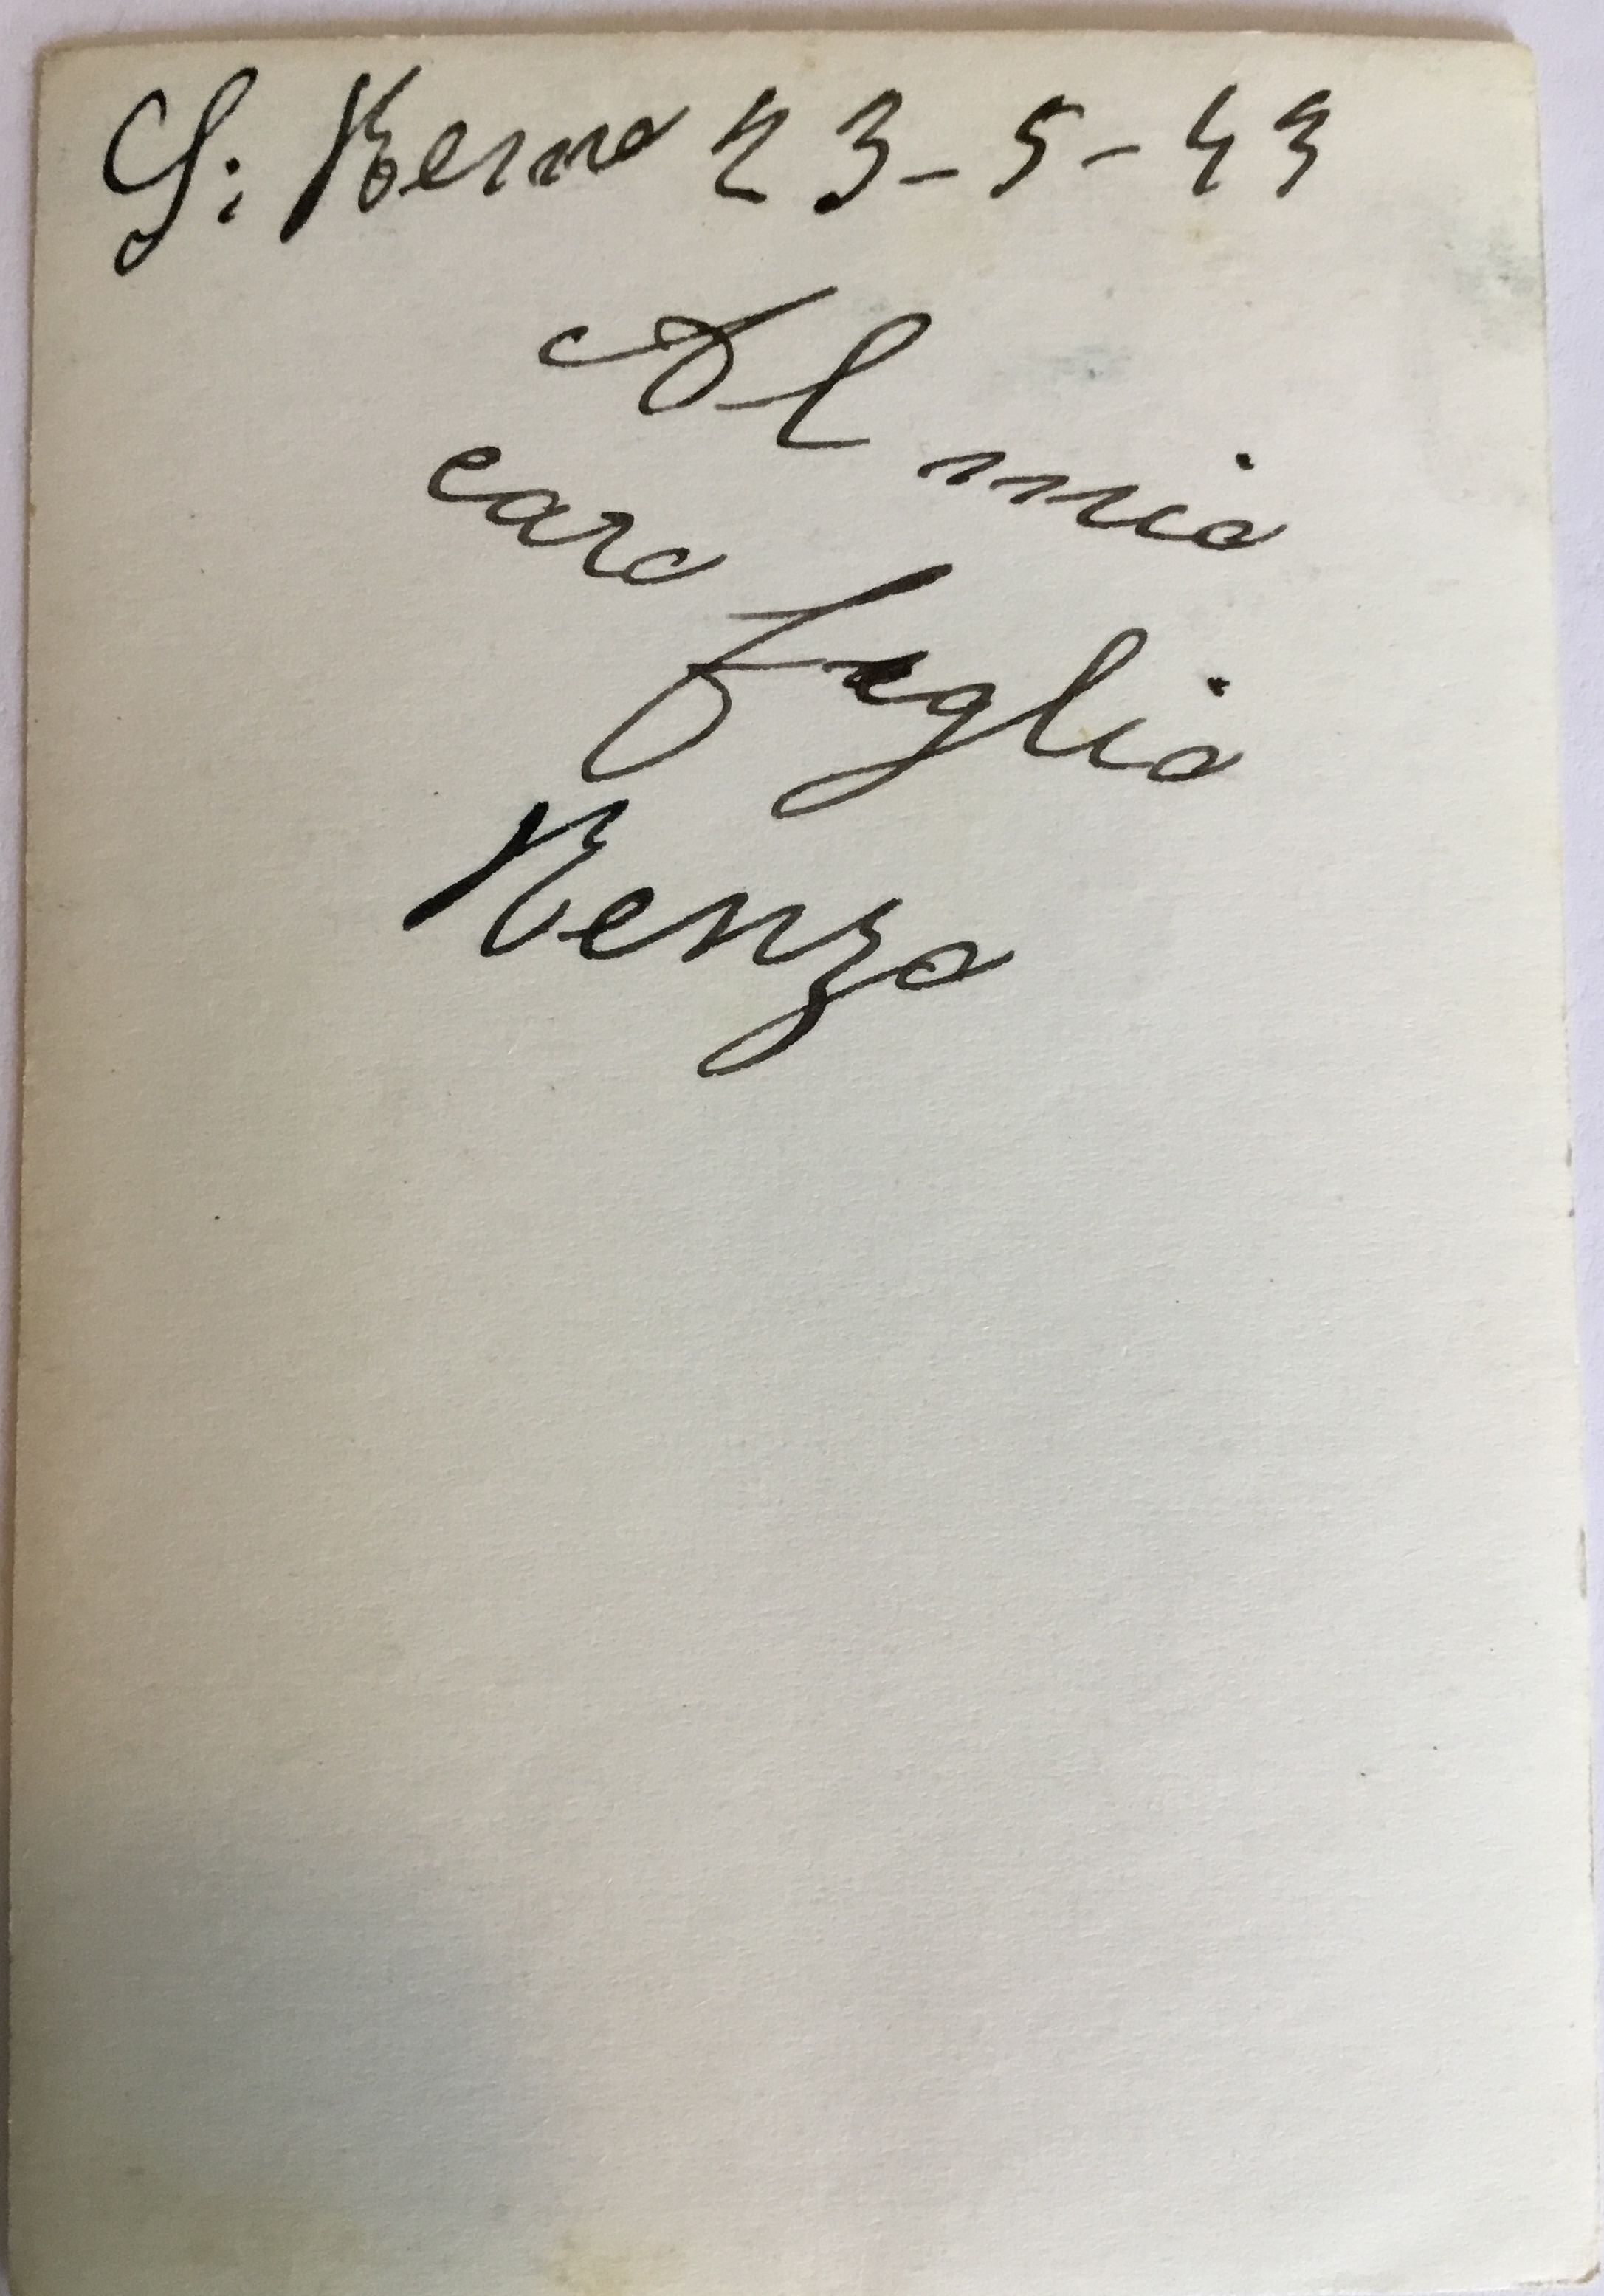 S. Remo 23-5-43
Al mio
caro figlio
Renzo